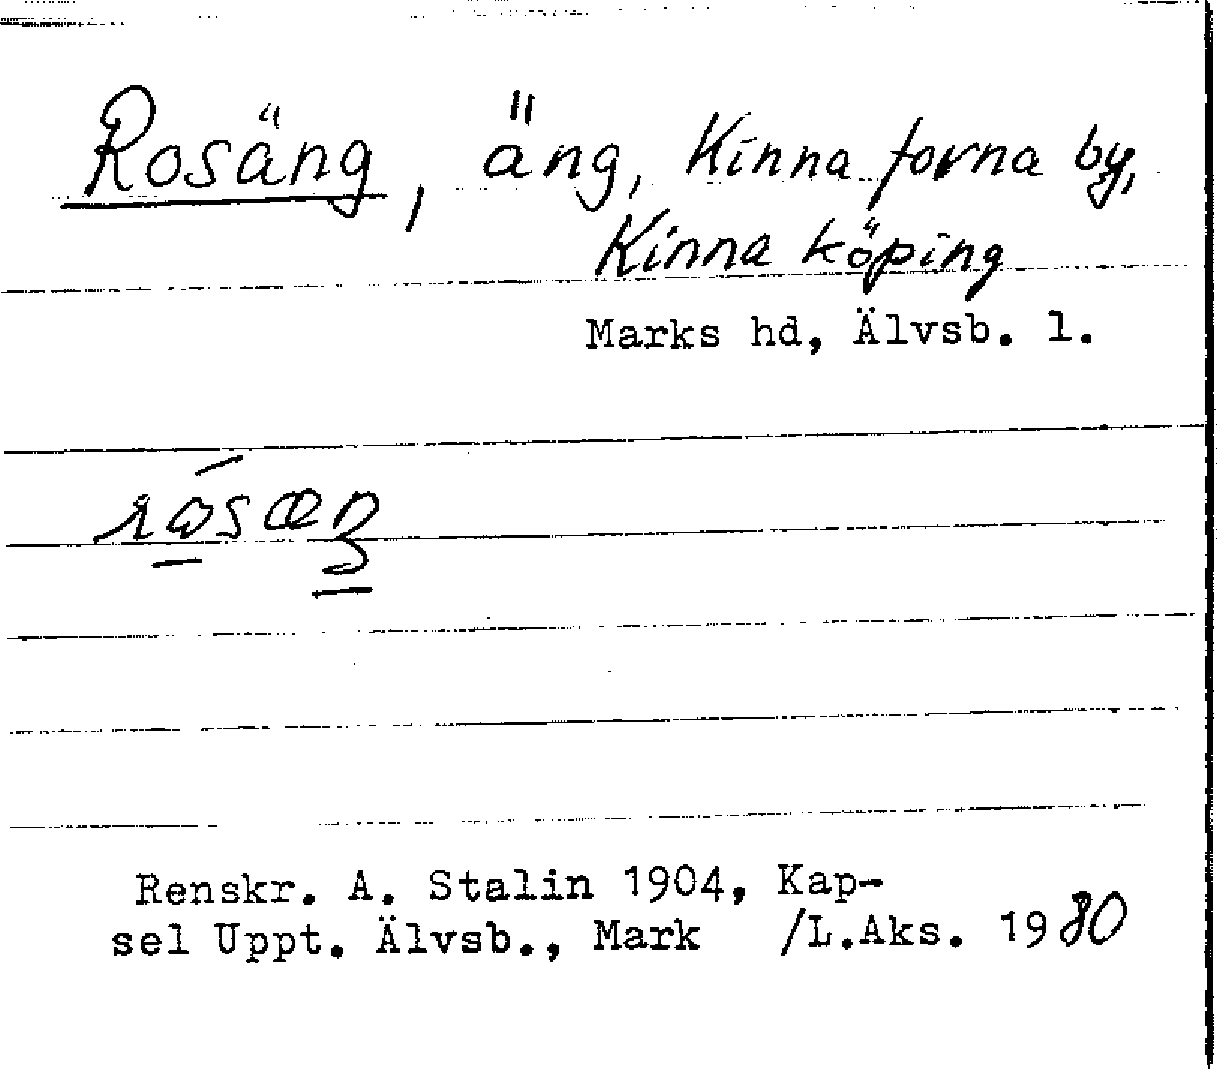 Rosäng, äng, Kinna forna by,
Kinna köping
Marks hd, Älvsb. l.
Renskr. A. Stalin 1904, Kap-
sel Uppt. Älvsb., Mark /L.Aks. 1980